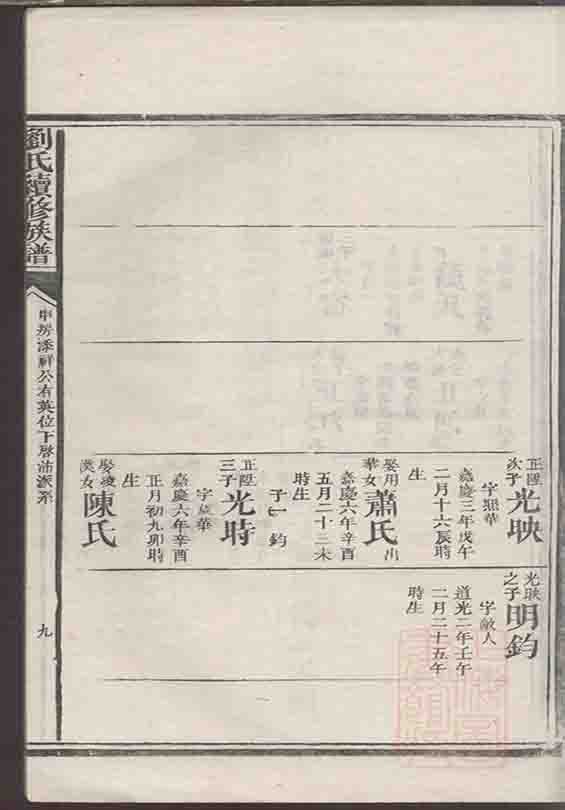 正陞次子光映
字照華
嘉慶三年戊午
二月十六辰時
生
娶用華女蕭氏出
嘉慶六年辛酉
五月二十三未
時生
子一鈞
正陞三子光時
字
華
嘉慶六年辛酉
正月初九卯時
生
娶
女陳氏
光映之子明鈞
字敵人
道光二年壬午
二月二十五午
時生
劉氏續修族譜
申房添祥公有英位下啓沛派系
九